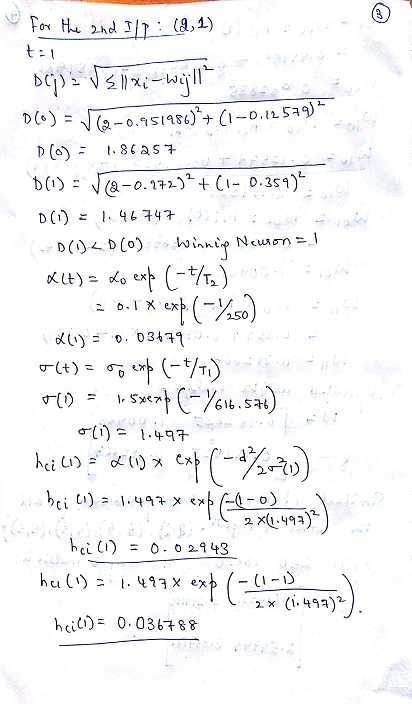 ③
For the 2nd I/P : (2,1)
t = 1
D(j) = √Σ||xi - wij||²
D(0) = √(2-0.951986)² + (1-0.12579)²
D(0) = 1.86257
D(1) = √(2-0.272)² + (1-0.359)²
D(1) = 1.46747
D(1) < D(0) Winnig Neuron = 1
α(t) = α₀ exp (-t/T₂)
= 0.1 × exp (-1/250)
α(1) = 0.03679
σ(t) = σ₀ exp (-t/T₁)
σ(1) = 1.5×exp (-1/616.576)
σ(1) = 1.497
hci (1) = α(1) × exp (-d²/2σ²(1))
hci (1) = 1.497 × exp (-(1-0)/2×(1.497)²)
hci (1) = 0.02943
hci (1) = 1.497 × exp (-(1-1)/2×(1.497)²).
hci(1) = 0.036788